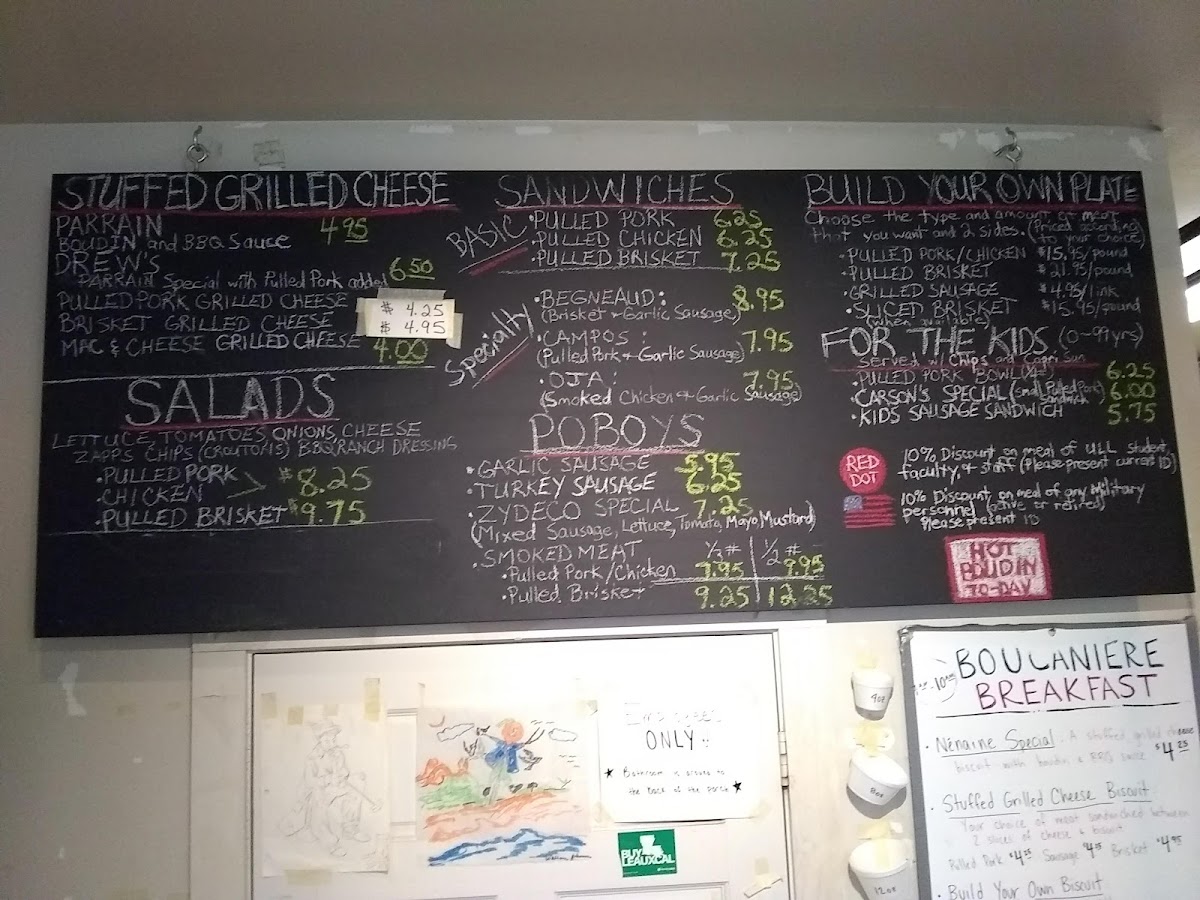 STUFFED GRILLED CHEESE
PARRAIN 4.95
BOUDIN and BBQ Sauce
DREW'S
PARRAIN Special with Pulled Pork added 6.50
PULLED PORK GRILLED CHEESE $ 4.25
BRISKET GRILLED CHEESE $ 4.95
MAC & CHEESE GRILLED CHEESE 4.00
SALADS
LETTUCE, TOMATOES, ONIONS, CHEESE
ZAPPS CHIPS (CROUTONS) BBQ/RANCH DRESSING
•PULLED PORK
•CHICKEN > $8.25
•PULLED BRISKET $9.75
SANDWICHES
BASIC
•PULLED PORK 6.25
•PULLED CHICKEN 6.25
•PULLED BRISKET 7.25
Specialty
•BEGNEAUD: 8.95
(Brisket & Garlic Sausage)
•CAMPOS: 7.95
(Pulled Pork & Garlic Sausage)
•OJA: 7.95
(Smoked Chicken & Garlic Sausage)
POBOYS
•GARLIC SAUSAGE 5.95
•TURKEY SAUSAGE 6.25
•ZYDECO SPECIAL 7.25
(Mixed Sausage, Lettuce, Tomato, Mayo, Mustard)
•SMOKED MEAT 1/3# 1/2#
•Pulled Pork/Chicken 7.95 9.95
•Pulled Brisket 9.25 12.25
BUILD YOUR OWN PLATE
Choose the type and amount of meat
that you want and 2 sides. (Priced according
to your choice)
•PULLED PORK/CHICKEN $15.95/pound
•PULLED BRISKET $21.95/pound
•GRILLED SAUSAGE $4.95/link
•SLICED BRISKET $15.95/pound
(when available)
FOR THE KIDS (0-99yrs)
Served w/ Chips and Capri Sun
•PULLED PORK BOWL 6.25
•CARSON'S SPECIAL (small Pulled Pork Sandwich) 6.00
•KIDS SAUSAGE SANDWICH 5.75
RED
DOT
10% Discount on meal of ULL student
faculty, & staff (Please present current ID)
10% Discount on meal of any military
personnel (active or retired)
Please present ID
HOT
BOUDIN
TO-DAY
ONLY
★ Bathroom is around to
the back of the porch ★
BUY
LEAUXCAL
4oz
8oz
12oz
BOUCANIERE
BREAKFAST
• Nénaine Special - A stuffed grilled cheese
biscuit with boudin & BBQ sauce $4.25
• Stuffed Grilled Cheese Biscuit
Your choice of meat sandwiched between
2 slices of cheese & biscuit
Pulled Pork $4.25 Sausage $4.25 Brisket $4.95
• Build Your Own Biscuit